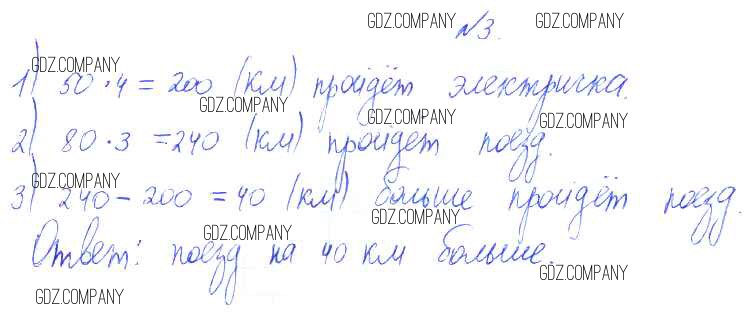 №3.
1) 50·4=200 (км) пройдёт электричка.
2) 80·3=240 (км) пройдет поезд.
3) 240-200=40 (км) больше пройдёт поезд.
Ответ: поезд на 40 км больше.
GDZ.COMPANY GDZ.COMPANY
GDZ.COMPANY
GDZ.COMPANY GDZ.COMPANY GDZ.COMPANY
GDZ.COMPANY
GDZ.COMPANY GDZ.COMPANY
GDZ.COMPANY GDZ.COMPANY
GDZ.COMPANY